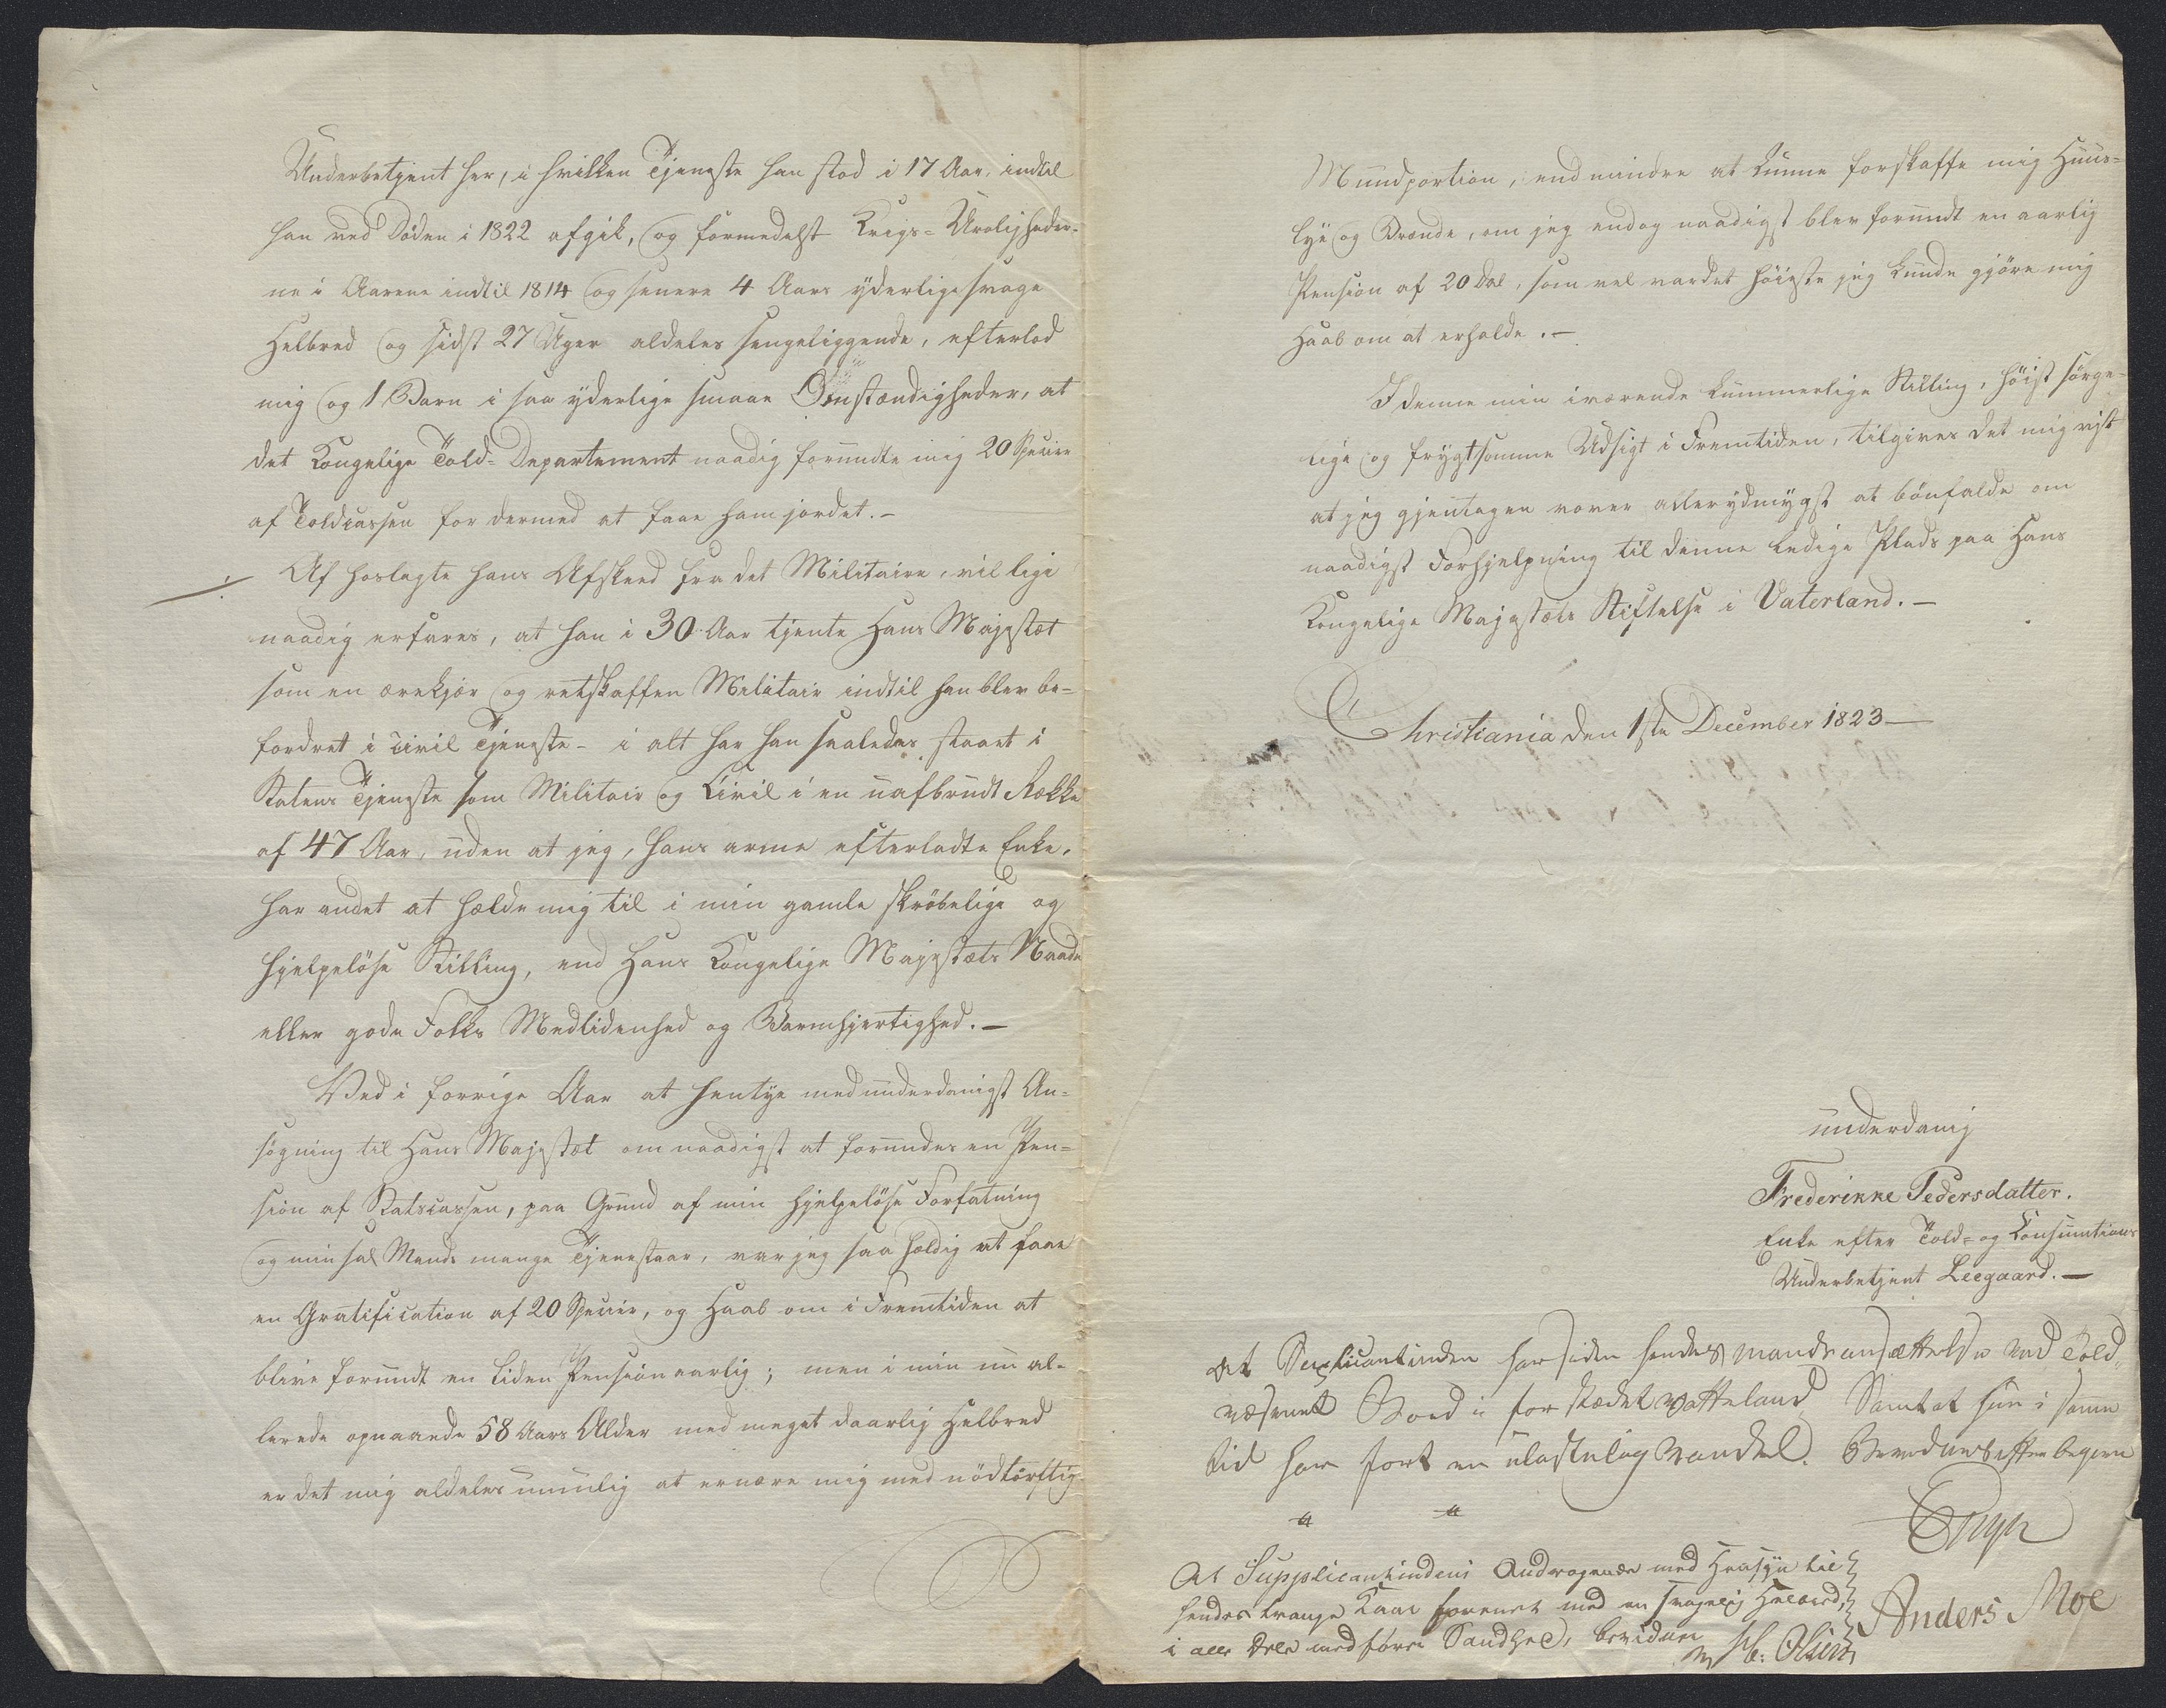 Underbetjent her, i hvilken Tjeneste han stod i 17 Aar, indtil
han ved Döden i 1822 afgik, og formedelst Krigs-Uroligheder-
ne i Aarene indtil 1814 og senere 4 Aars yderlige svage
Helbred og sidst 27 Uger aldeles sengeliggende, efterlod
mig og 1 Barn i saa yderlige smaae Omstændigheder, at
det Kongelige Told-Departement naadig forundte mig 20 Specier
af Toldcassen for dermed at faae ham jordet.-
Af hoslagte hans Afskeed fra det Militaire, vil lige
naadig erfares, at han i 30 Aar tjente Hans Majestæt
som en ærekjær og retskaffen Militair indtil han blev be-
fordret i civil Tjeneste- i alt har han saaledes staaet i
Statens Tjeneste som Militair og Civil i en uafbrudt Række
af 47 Aar, uden at jeg, hans arme efterladte Enke,
har andet at holde mig til i min gamle skröbelige og
hjelpelöse Stilling, end Hans Kongelige Majestæts Naade
eller gode Folks Medlidenhed og Barmhjertighed.-
Ved i forrige Aar at hentye med underdanigst An-
sögning til Hans Majestæt om naadigst at forundes en Pen-
sion af Statscassen, paa Grund af min hjelpelöse Forfatning
og min sal Mands mange Tjenestaar, var jeg saa heldig at faae
en Gratification af 20 Specier, og Haab om i Fremtiden at
blive forundt en liden Pension aarlig; men i min nu al-
lerede opnaaede 58 Aars Alder med meget daarlig Helbred
er det mig aldeles umulig at ernære mig med nödtörftig
Mundportion, end mindre at kunne forskaffe mig Huus-
lye og Brænde, om jeg endog naadigst blev forundt en aarlig
Pension af 20 Dal, som vel var det höieste jeg kunde gjöre mig
Haab om at erholde.-
I denne min iværende kummerlige Stilling, höist sörge-
lige og frygtsomme Udsigt i Fremtiden, tilgives det mig vist
at jeg gjentagen vover allerydmygst at bönfalde om
naadigst Forhjelpning til denne ledige Plads paa Hans
Kongelige Majestæts Stiftelse i Vaterland.-
Christiania den 1ste December 1823-
underdanig
Frederikke Pedersdatter.
Enke efter Told- og Consumtions
Underbetjent Leegaard.-
At Suplicantinden har siden hendes mands ansættelse ved Told-
væsenet Boed i forstædet Vatteland Samt at hun i samme
tid har fört en ulastelig Vandel. Bevidnes efter begjere
At Supplicantindens Andragende med Hensyn til
hendes trange Kaar forenet med en svagelig Helbred,
i alle Dele medförer Sandhed, bevidner
Anders Moe
Olsen